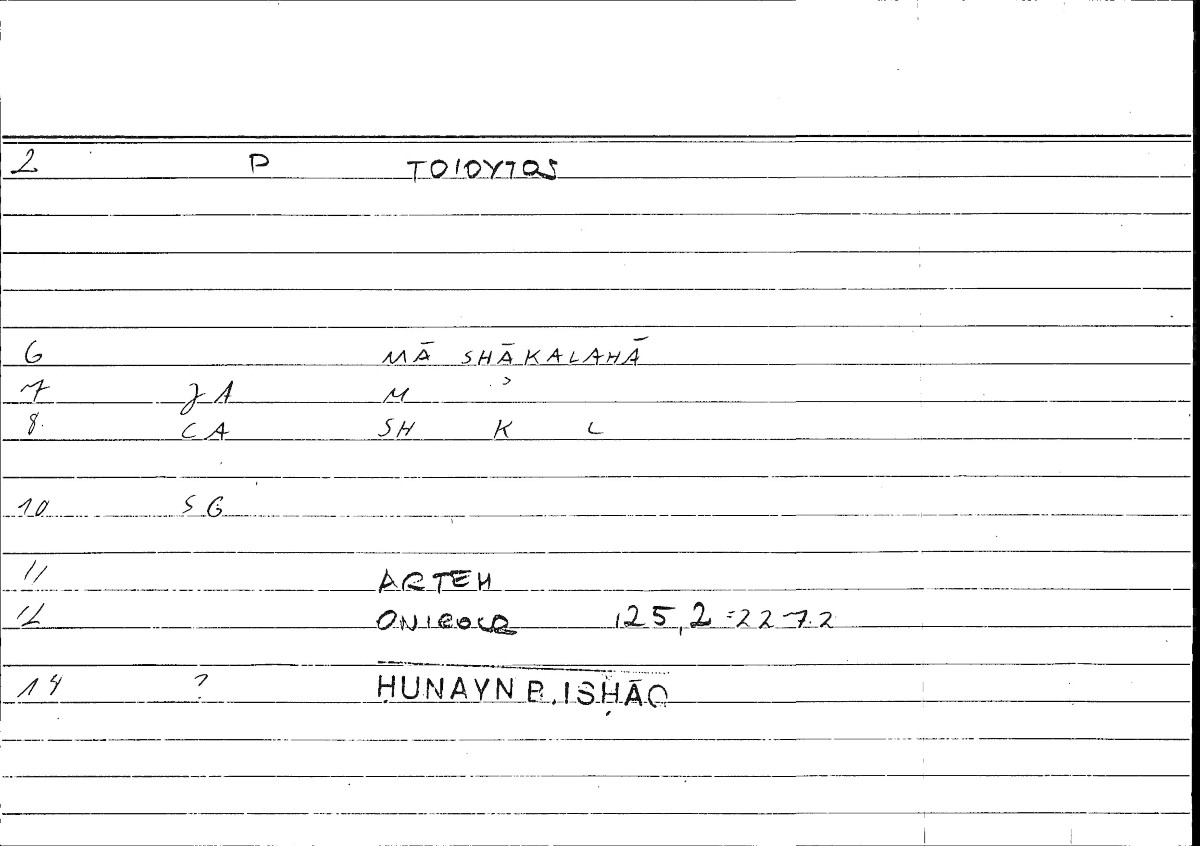 2 P TOIOYTOS
6 MĀ SHĀKALAHĀ
7 JA M ʾ
8. CA SH K L
10 SG
11 ARTEM
12 ONIROCR 125,2=227.2
14 ? ḤUNAYN B. ISḤĀQ